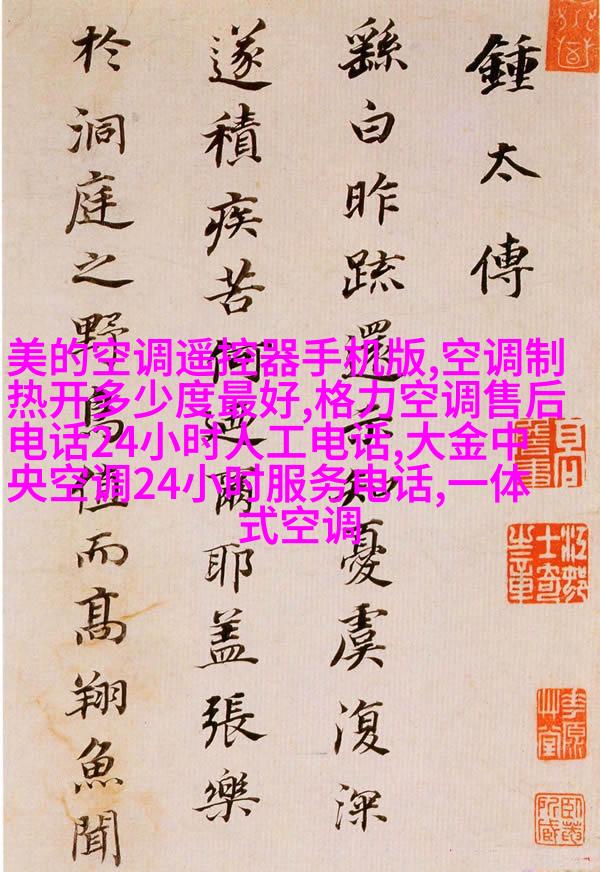 鍾太傅
繇白昨疏還示知憂虞復深
遂積疾苦何迺爾耶蓋張樂
於洞庭之野鳥值而高翔魚聞
美的空调遥控器手机版,空调制
热开多少度最好,格力空调售后
电话24小时人工电话,大金中
央空调24小时服务电话,一体
式空调
江邨
士奇
之章
臥菴
所藏